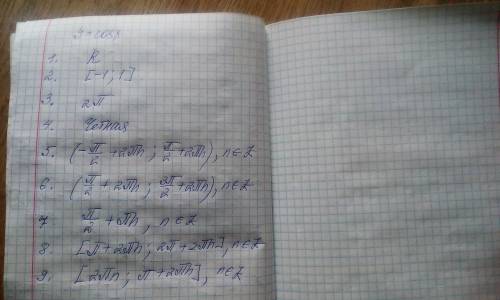 y = cosx
1. R
2. [-1; 1]
3. 2π
4. Четная
5. (-π/2 + 2πn; π/2 + 2πn), n∈Z
6. (π/2 + 2πn; 3π/2 + 2πn), n∈Z
7 π/2 + πn, n∈Z
8. [π + 2πn; 2π + 2πn], n∈Z
9. [2πn; π + 2πn], n∈Z